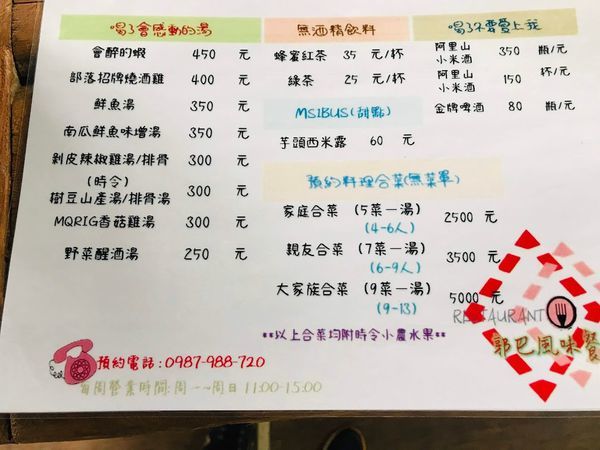 喝了會感動的湯
會醉的蝦 450 元
部落招牌燒酒雞 400 元
鮮魚湯 350 元
南瓜鮮魚味增湯 350 元
剝皮辣椒雞湯/排骨 300 元
(時令)
樹豆山產湯/排骨湯 300 元
MQRIG香菇雞湯 300 元
野菜醒酒湯 250 元
無酒精飲料
蜂蜜紅茶 35 元/杯
綠茶 25 元/杯
MSIBUS(甜點)
芋頭西米露 60 元
喝了不要愛上我
阿里山
小米酒 350 瓶/元
阿里山
小米酒 150 杯/元
金牌啤酒 80 瓶/元
預約料理合菜(無菜單)
家庭合菜 (5菜一湯) 2500 元
(4-6人)
親友合菜 (7菜一湯) 3500 元
(6-9人)
大家族合菜 (9菜一湯) 5000 元
(9-13)
**以上合菜均附時令小農水果**
預約電話:0987-988-720
每周營業時間:周一~周日 11:00-15:00
RESTAURANT
郭巴風味餐